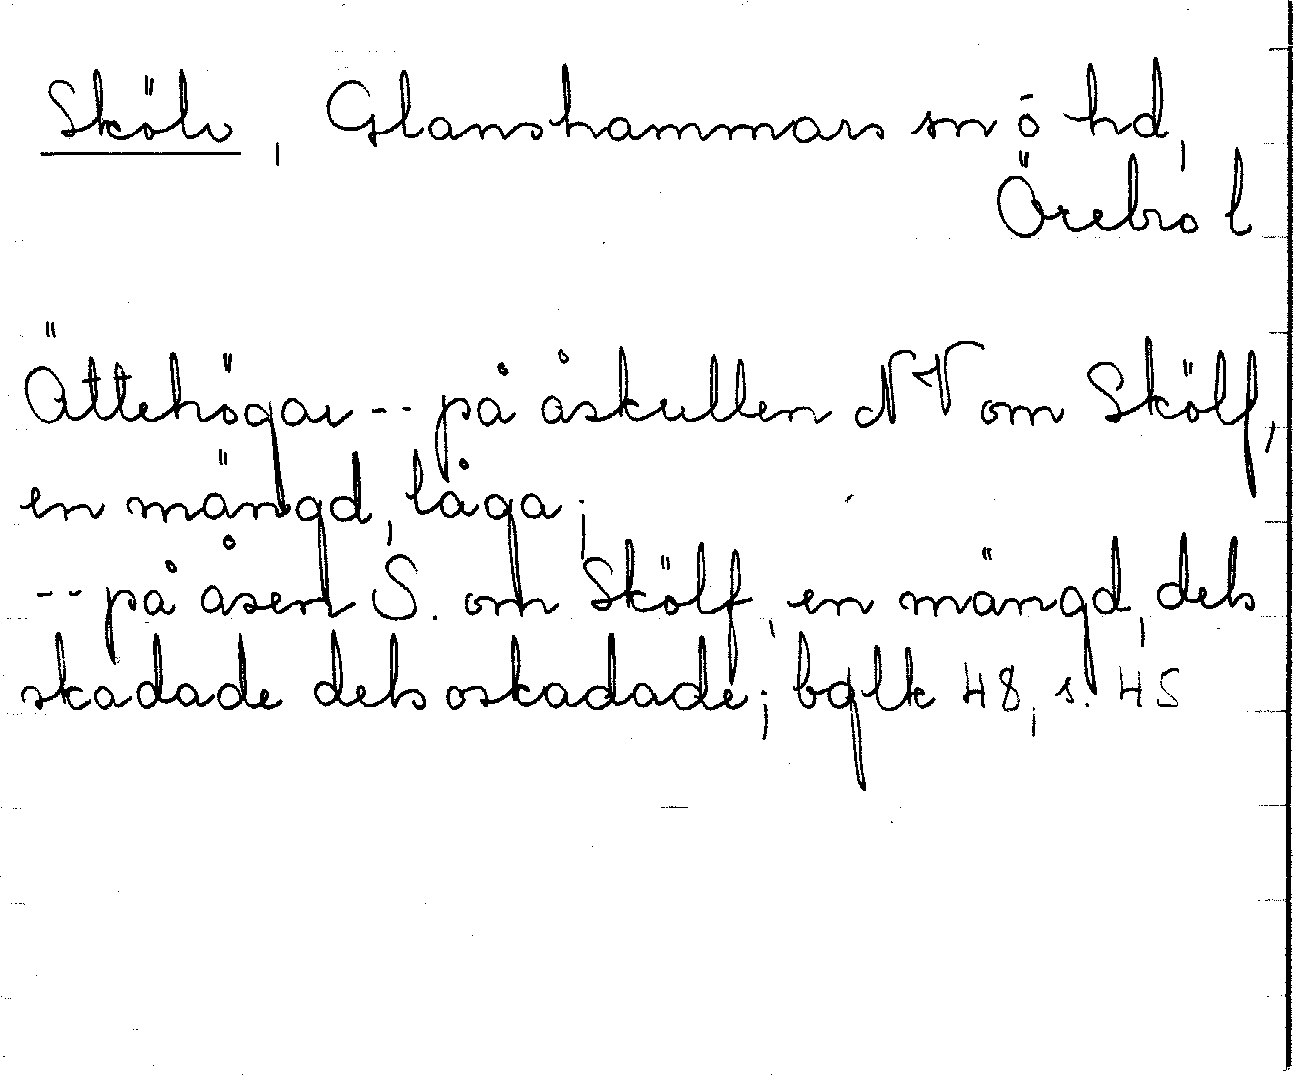 Skölv, Glanshammars sn o hd,
Örebro l
Ättehögar -- på åskullen NV om Skölf,
en mängd, låga;
-- på åsen S. om Skölf, en mängd, dels
skadade dels oskadade; bglk 48, s. 45